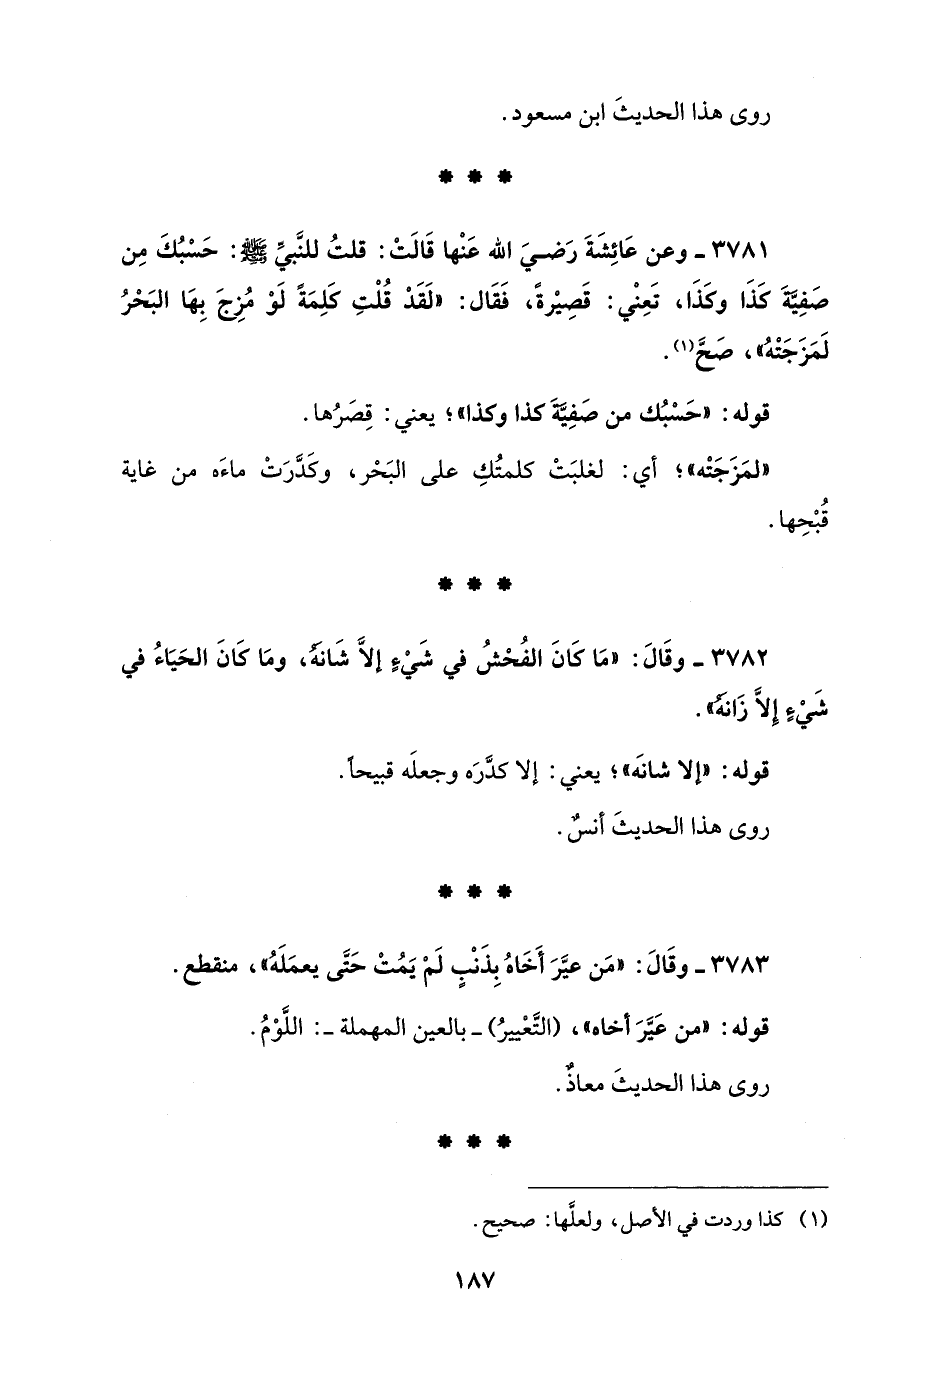 روى هذا الحديثَ ابن مسعود.
* * *
٣٧٨١ ـ وعن عَائِشَةَ رَضيَ الله عَنْها قَالَتْ: قلتُ للنَّبيِّ ﷺ: حَسْبُكَ مِن
صَفِيَّةَ كَذَا وكَذَا، تَعِنْي: قَصِيْرةً، فَقَال: «لَقَدْ قُلْتِ كَلِمَةً لَوْ مُزِجَ بِهَا البَحْرُ
لَمَزَجَتْهُ»، صَحَّ(١).
قوله: «حَسْبُك من صَفِيَّةَ كذا وكذا»؛ يعني: قِصَرُها.
«لمَزَجَتْه»؛ أي: لغلبَتْ كلمتُكِ على البَحْر، وكَدَّرَتْ ماءَه من غاية
قُبْحِها.
* * *
٣٧٨٢ ـ وقَالَ: «مَا كَانَ الفُحْشُ في شَيْءٍ إلاَّ شَانَهُ، ومَا كَانَ الحَيَاءُ في
شَيْءٍ إِلاَّ زَانَهُ».
قوله: «إلا شانَه»؛ يعني: إلا كدَّرَه وجعلَه قبيحاً.
روى هذا الحديثَ أنسٌ.
* * *
٣٧٨٣ ـ وقَالَ: «مَن عيَّرَ أَخَاهُ بِذَنْبٍ لَمْ يَمُتْ حَتَّى يعمَلَهُ»، منقطع.
قوله: «من عَيَّرَ أخاه»، (التَّعْييرُ) ـ بالعين المهملة ـ: اللَّوْمُ.
روى هذا الحديثَ معاذٌ.
* * *
(١) كذا وردت في الأصل، ولعلَّها: صحيح.
١٨٧